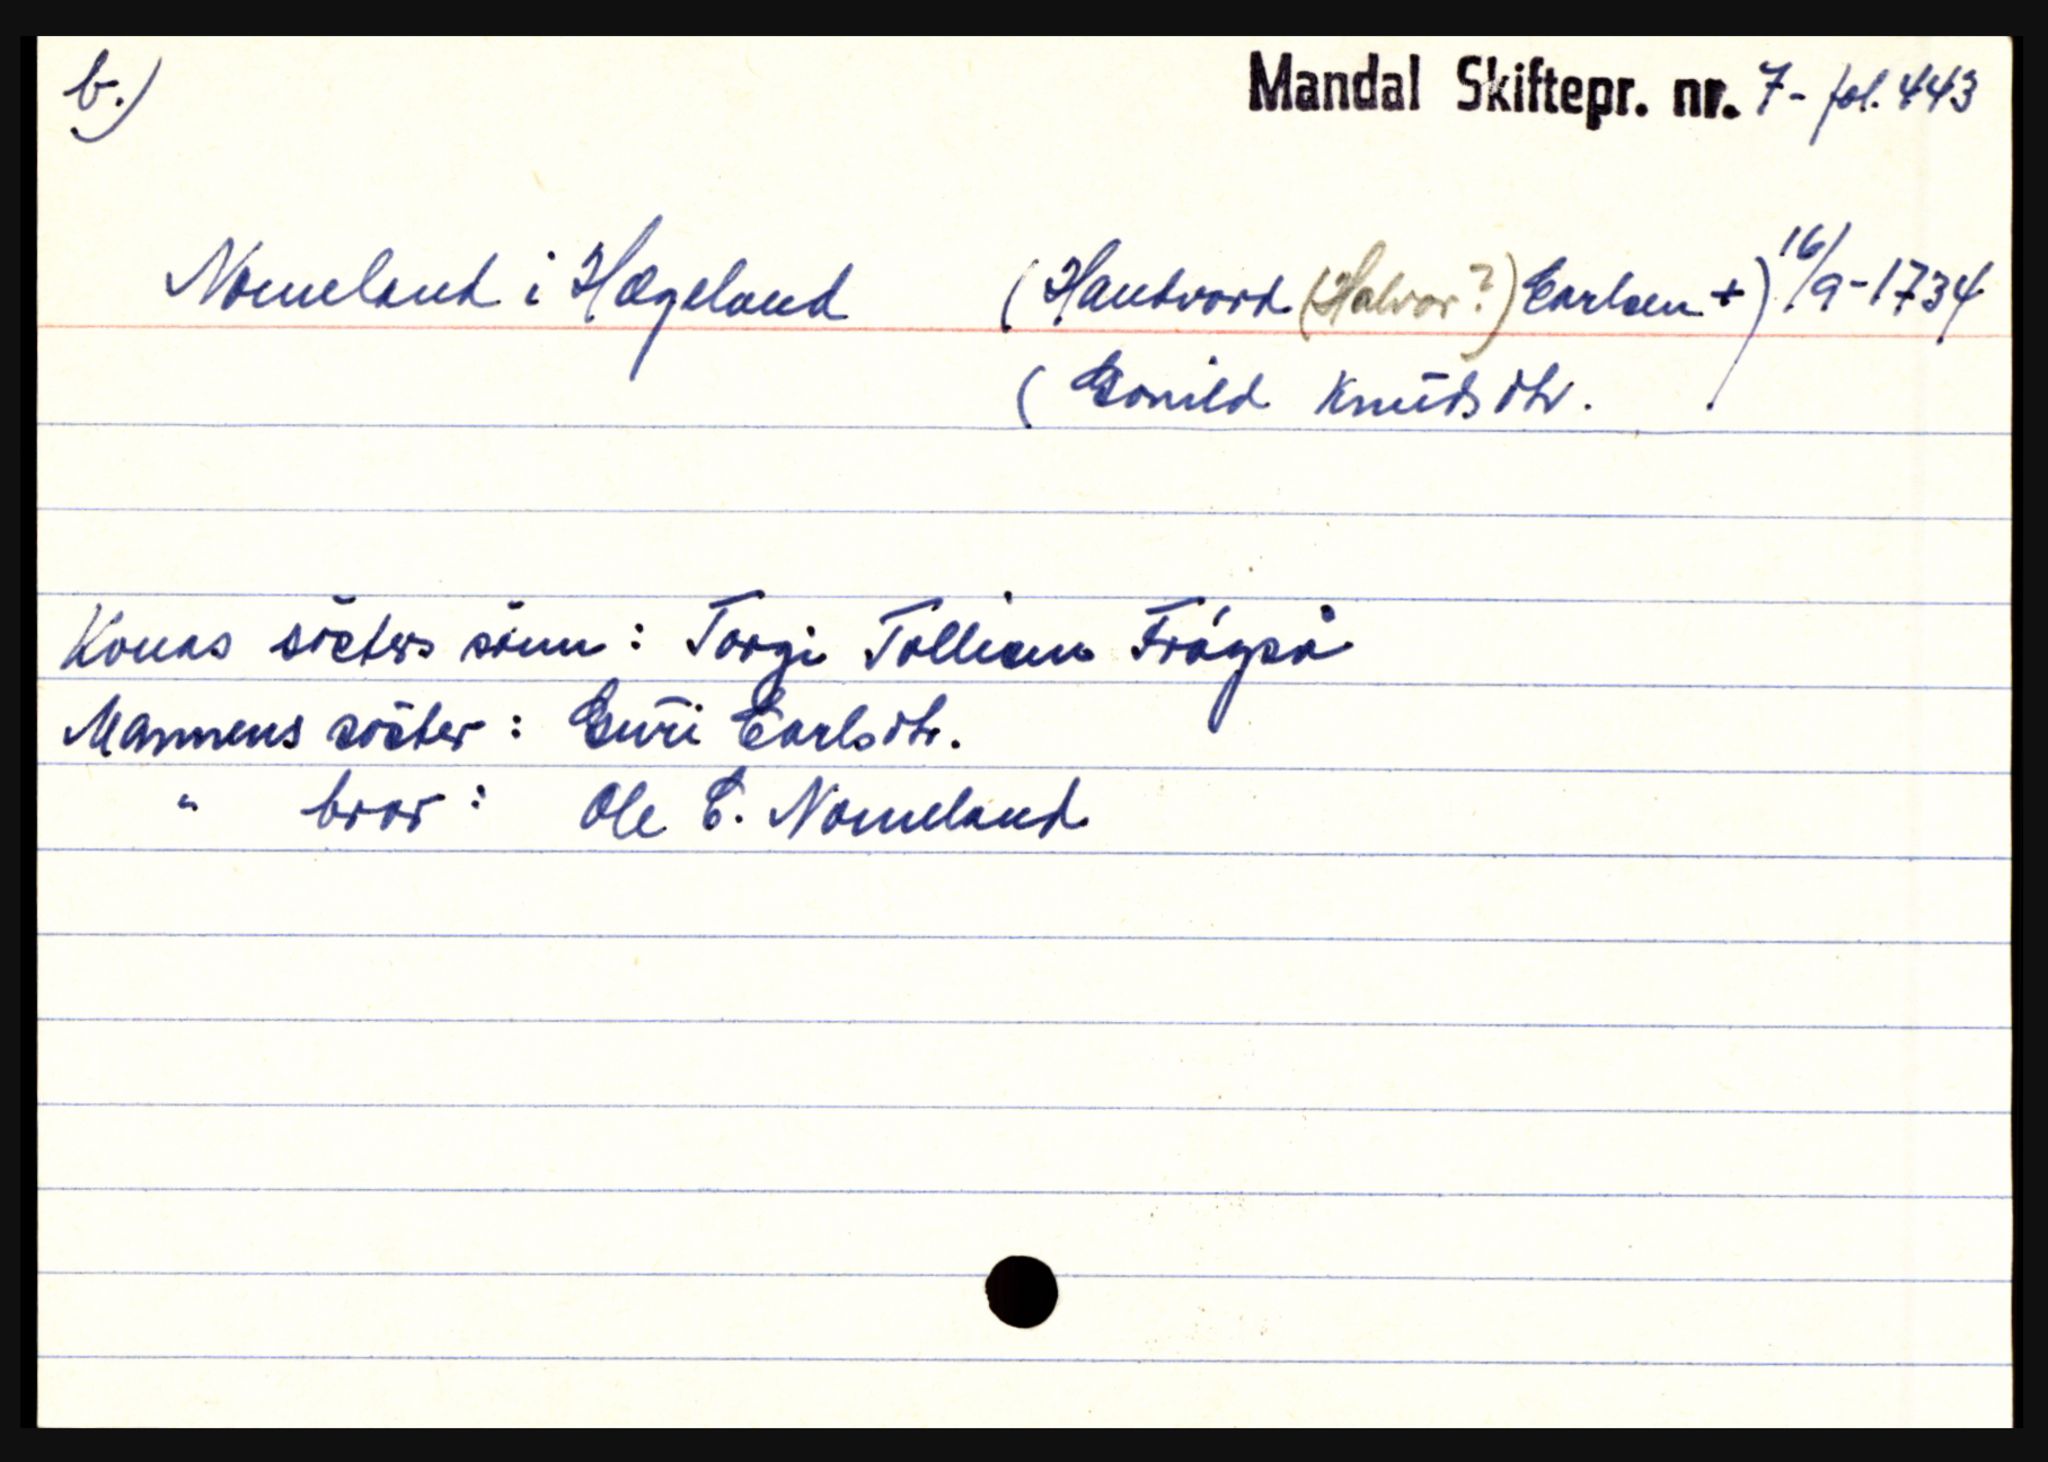 b.)
Mandal Skiftepr. nr. 7- fol. 443
Nomeland i Hægeland (Handvord (Halvor?) Earlsen +) 16/9-1734
(Gonild Knudsdtr.
Konas sösters sönn: Torgi Tolliens Frøyså
Mannens söster: Guri Earlsdtr.
" bror: Ole E. Nomeland